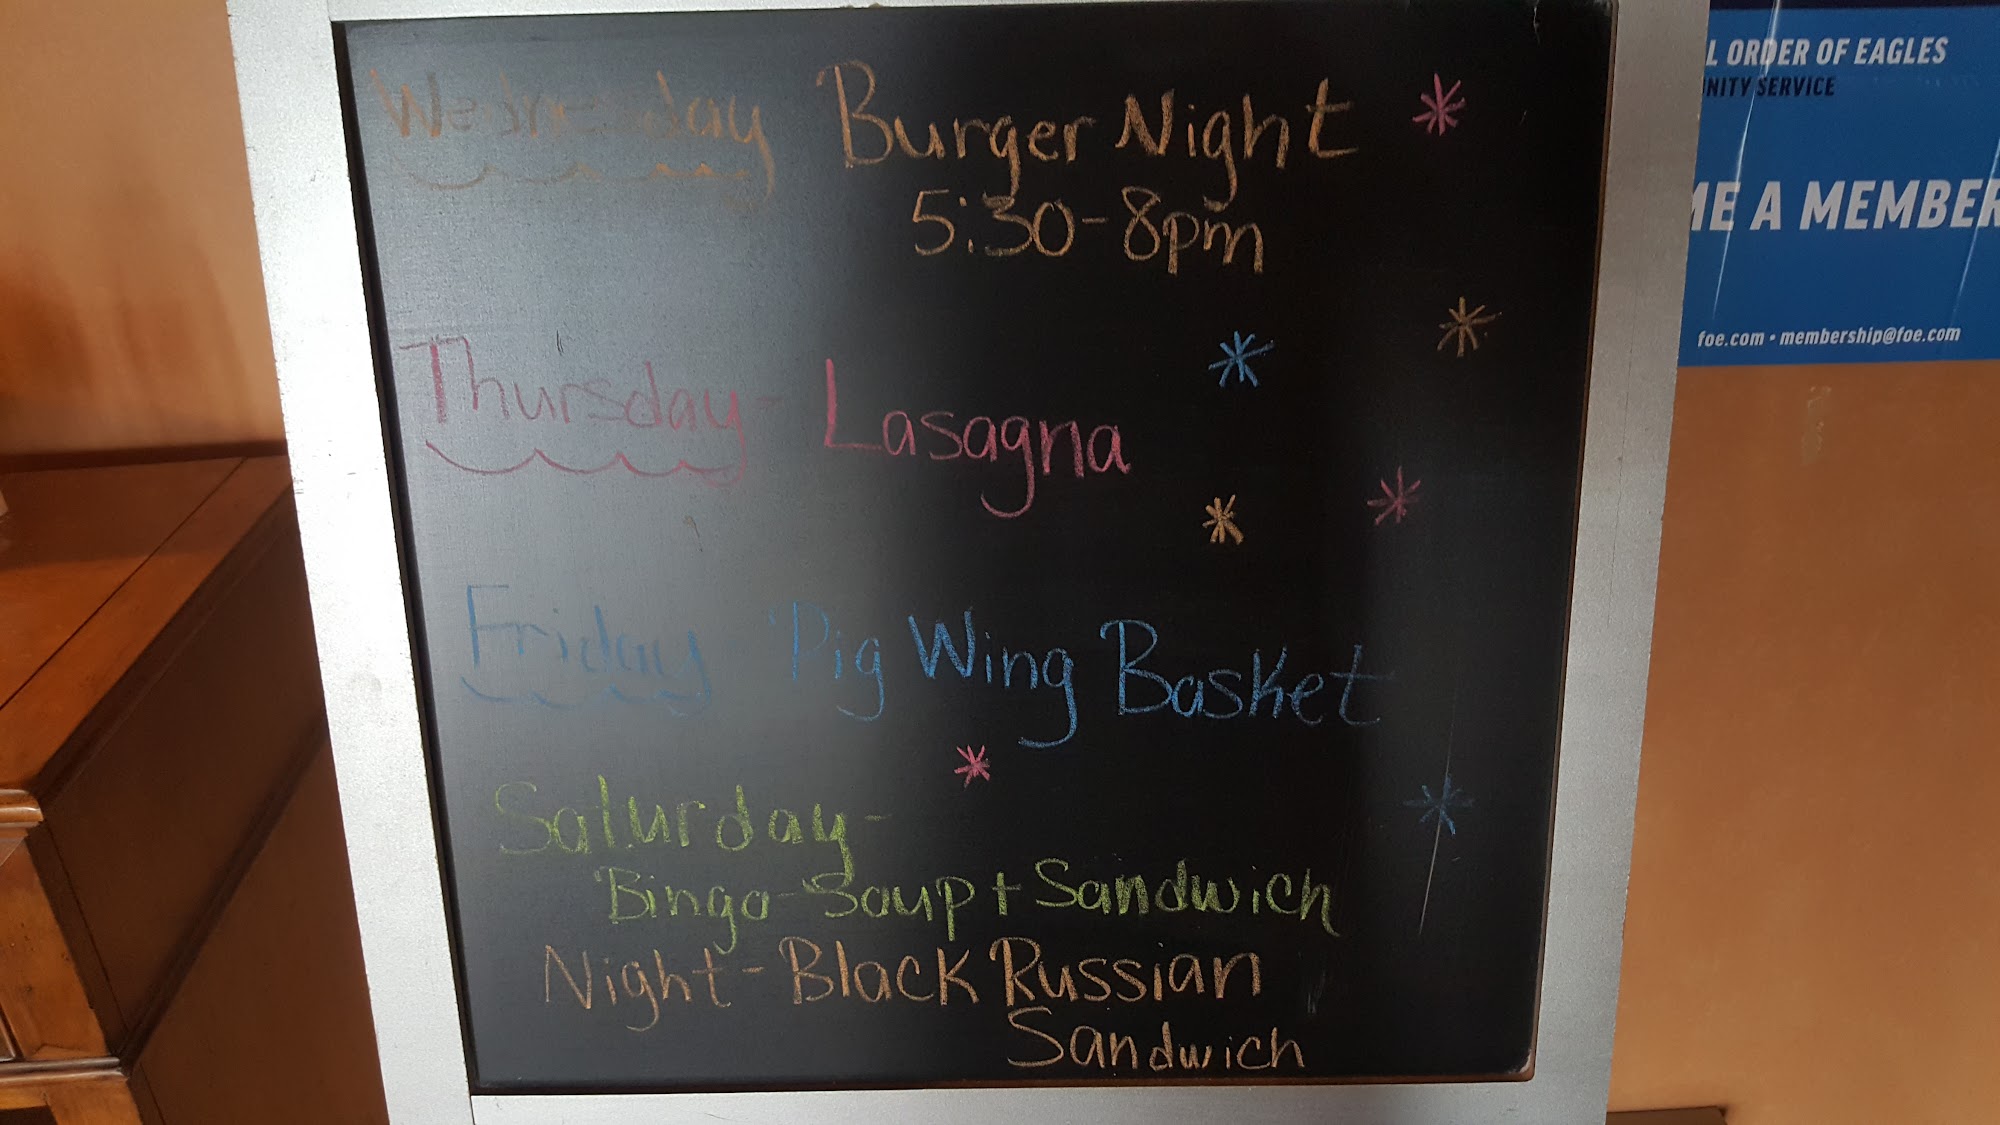 Wednesday Burger Night
5:30-8pm
Thursday- Lasagna
Friday Pig Wing Basket
Saturday-
Bingo-Soup + Sandwich
Night-Black Russian
Sandwich
L ORDER OF EAGLES
NITY SERVICE
ME A MEMBER
foe.com • membership@foe.com